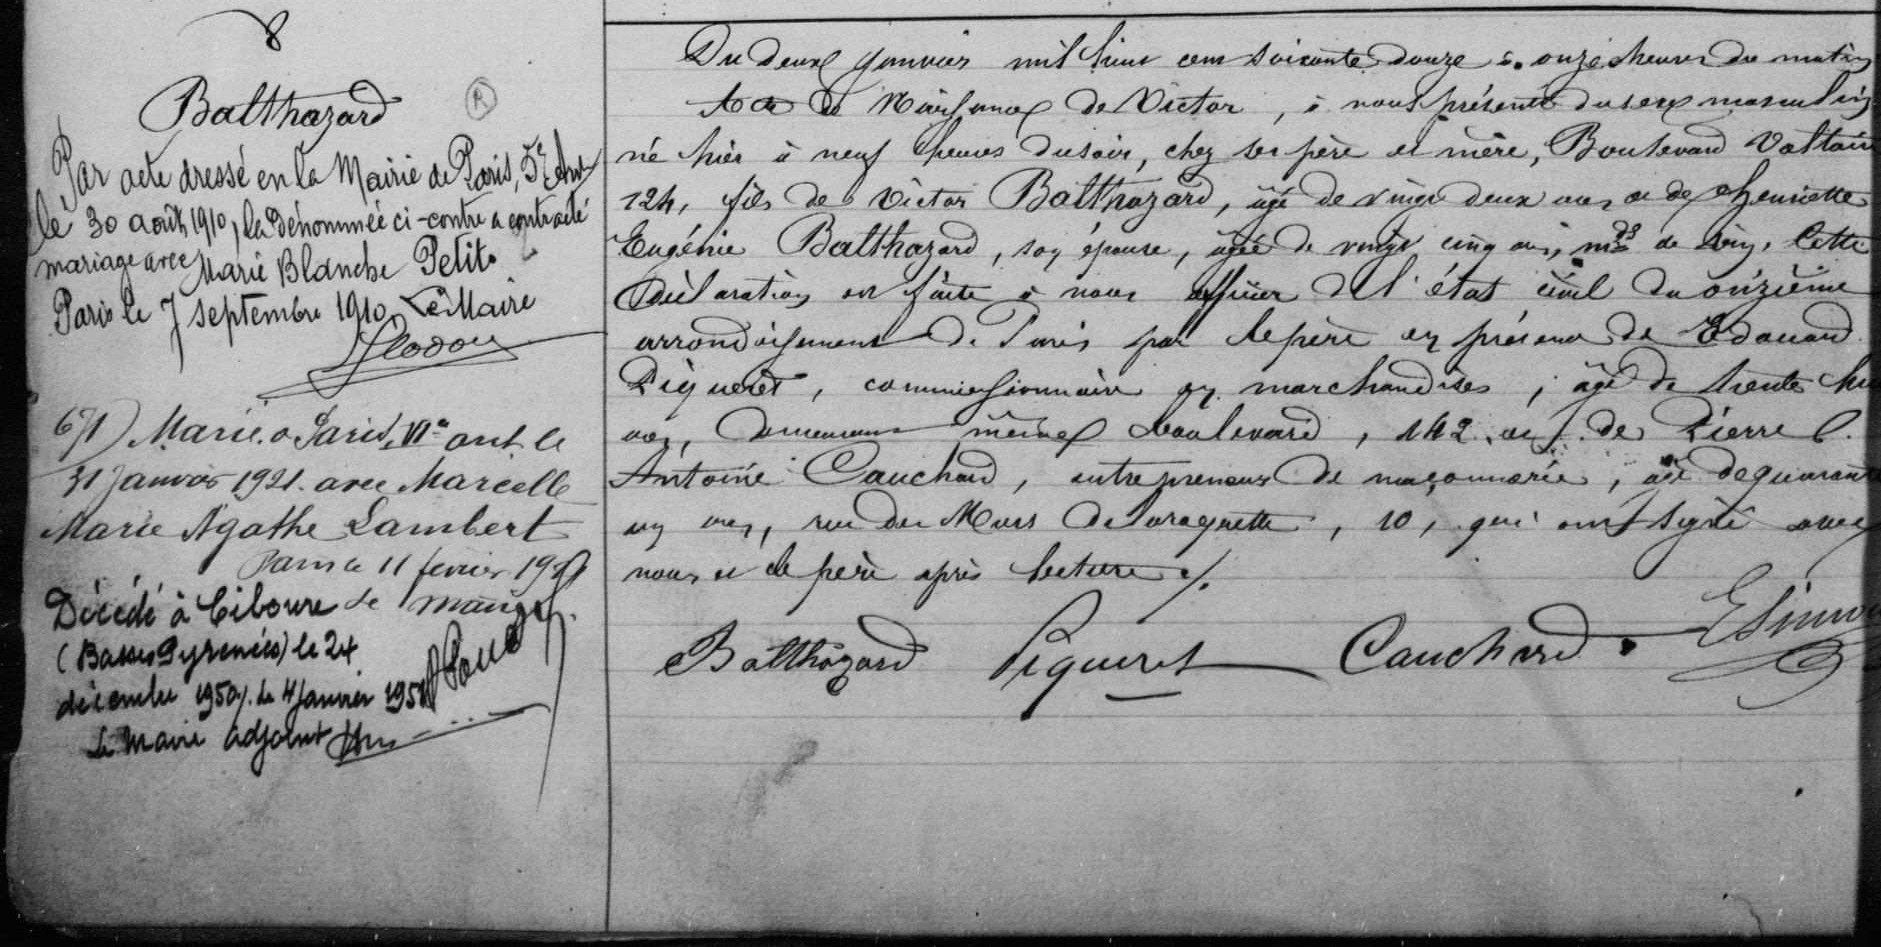 8
Balthazard
R
Par acte dressé en la Mairie de Paris, 5e Arr
le 30 août 1910, la dénommée ci-contre a contracté
mariage avec Marie Blanche Petit.
Paris le 7 septembre 1910. Le Maire
671) Marié à Paris, VIe arrt le
31 janvier 1921. avec Marcelle
Marie Agathe Lambert
Paris le 11 février 1921
Décédé à Ciboure
(Basses Pyrenées) le 24
décembre 1950/. Le 4 Janvier 1951
Le Maire adjoint
Du deux Janvier mil huit cent soixante douze à onze heures du matin
Acte de Naissance de Victor, à nous présenté du sexe masculin
né hier à neuf heures du soir, chez ses père et mère, Boulevard Voltaire
124, fils de Victor Balthazard, âgé de vingt deux ans et de Henriette
Eugénie Balthazard, son épouse, âgée de vingt cinq ans, mds de vin. Cette
Déclaration est faite à nous officier de l'état civil du onzième
arrondissement de Paris par le père en présence de Edouard
Piqueret, commissionnaire en marchandises, âgé de trente
ans, demeurant même boulevard, 142 et de Pierre
Antoine Cauchard, entrepreneur de maçonnerie, âgé de quarante
un ans, rue des Murs de la roquette, 10, qui ont signé avec
nous et le père après lecture ./.
Balthazard Piqueret Cauchard. ESimon